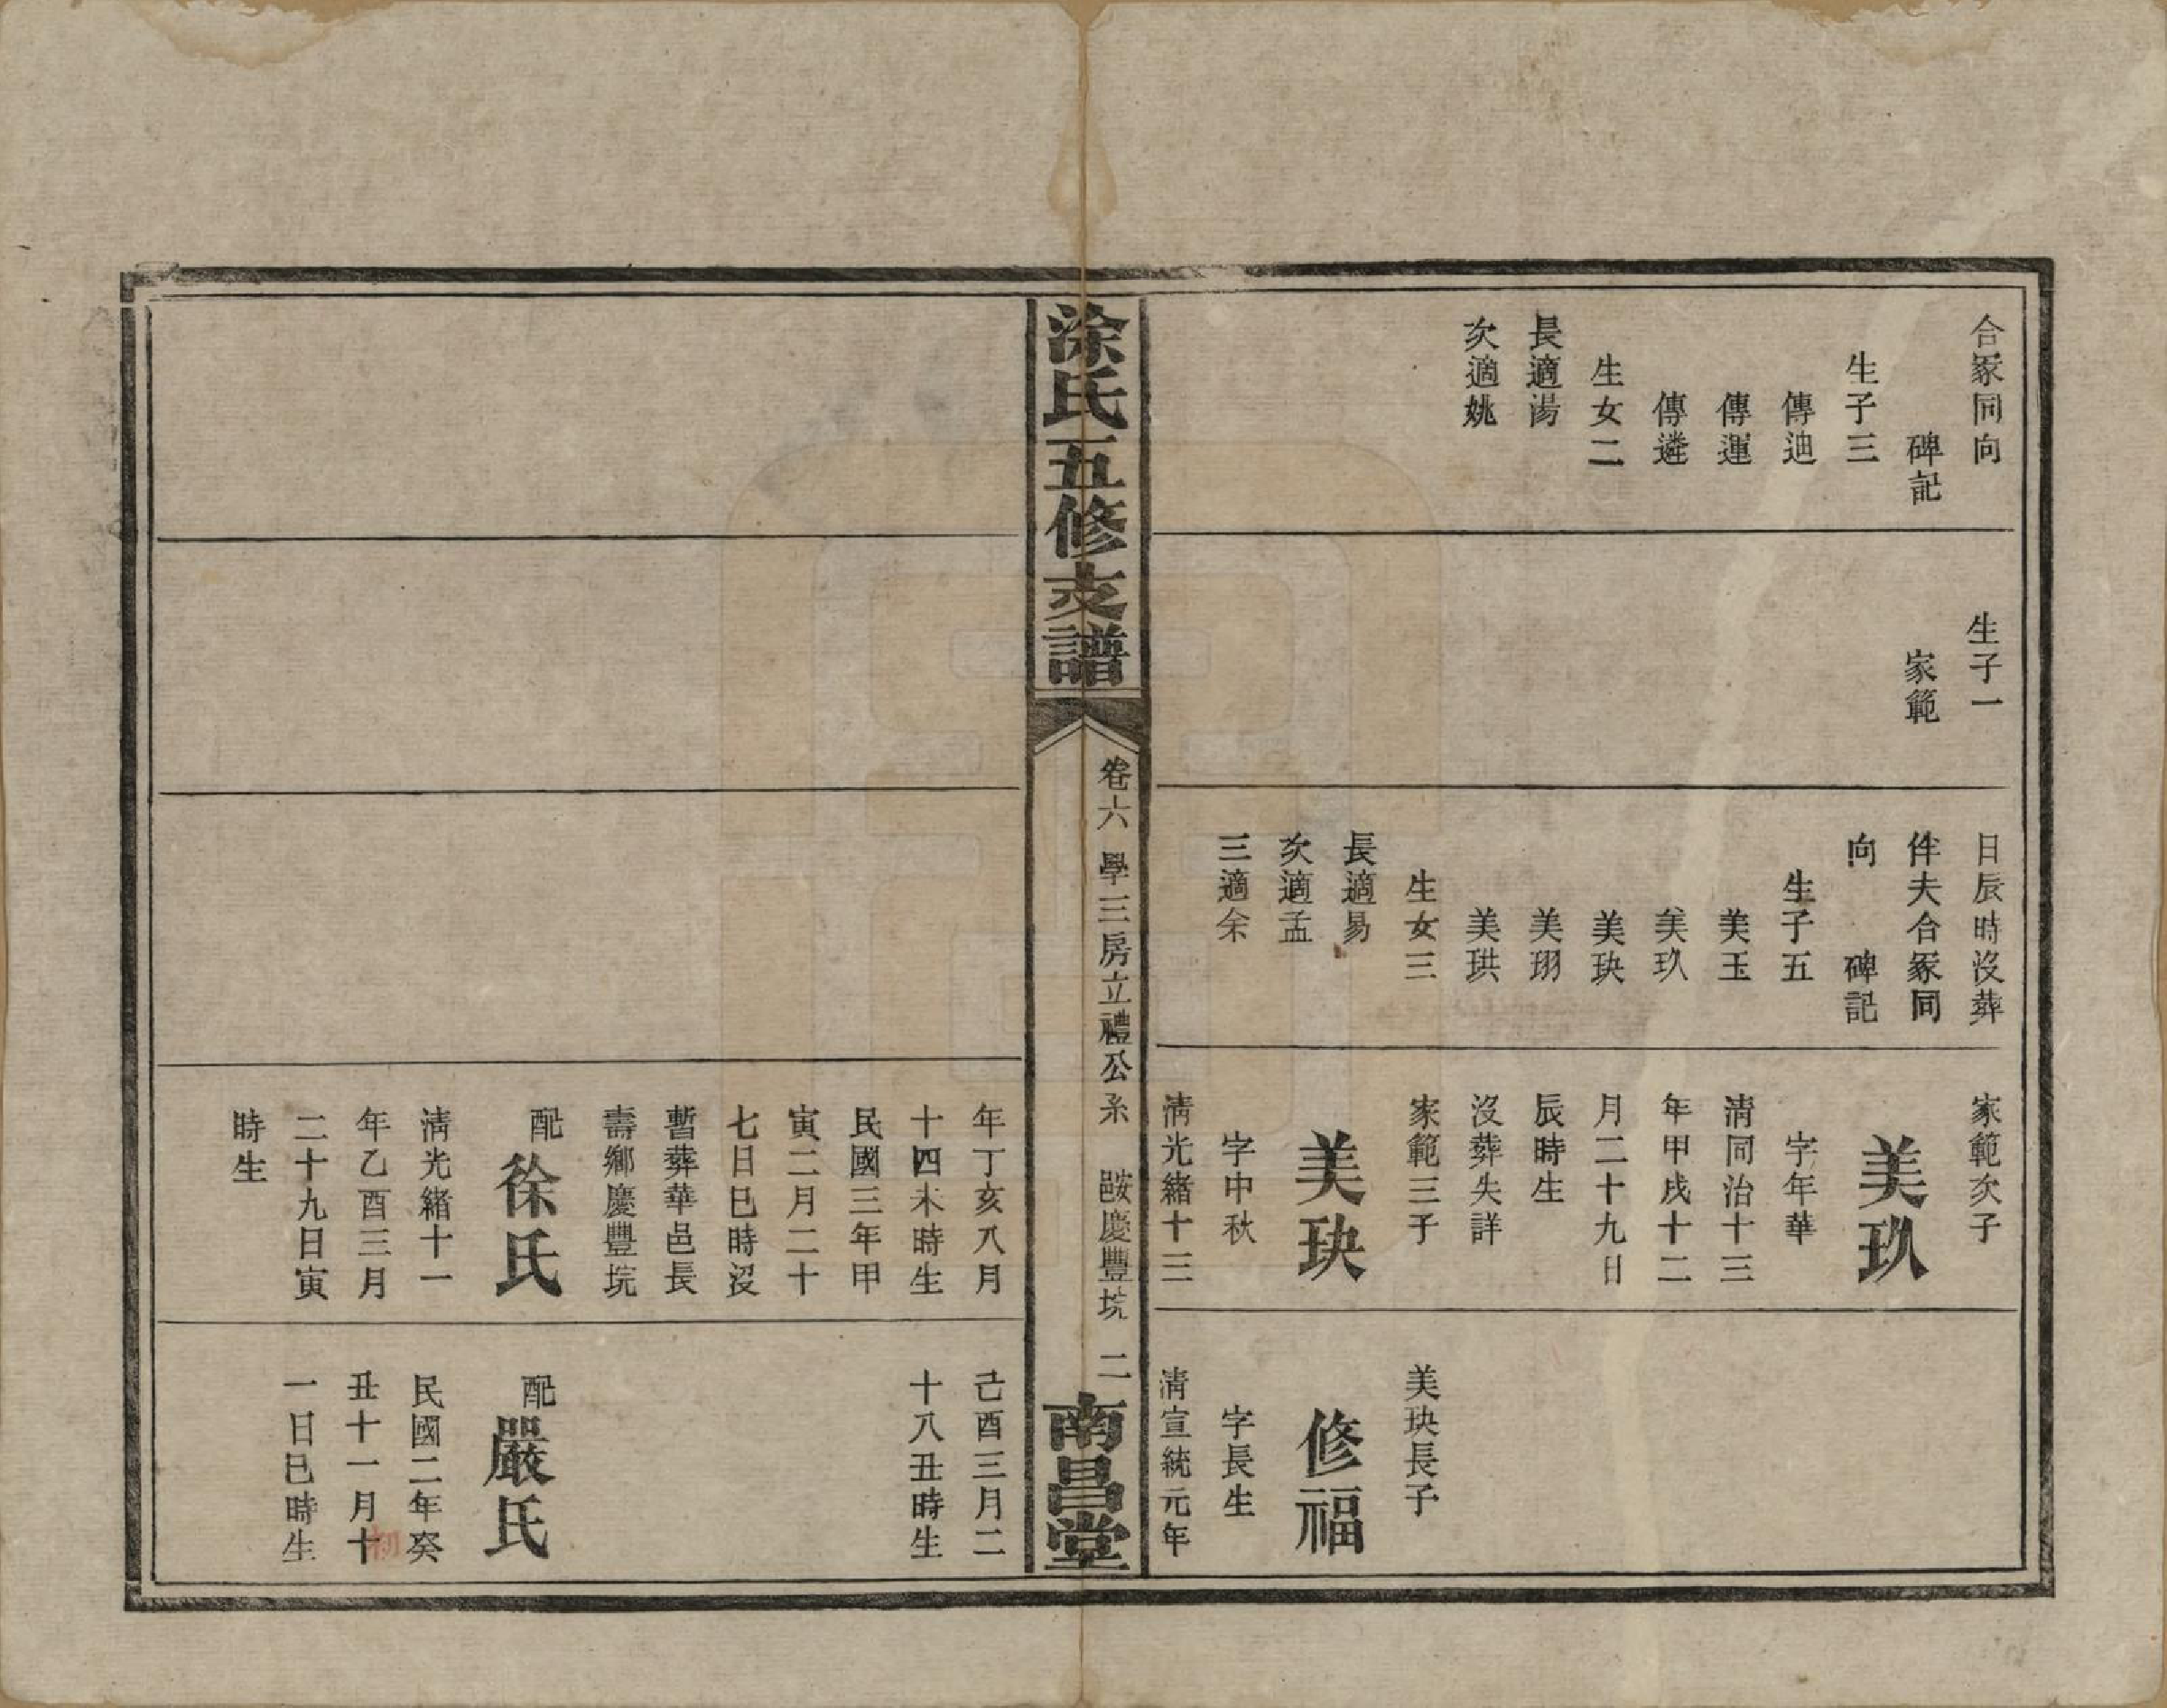 合冢同向
碑記
生子三
傳迪
傳運
傳遴
生女二
長適湯
次適姚
生子一
家範
日辰時沒葬
伴夫合冢同
向 碑記
生子五
美玉
美玖
美玦
美珝
美珙
生女三
長適易
次適孟
三適余
家範次子
美玖
字年華
清同治十三
年甲戌十二
月二十九日
辰時生
沒葬失詳
家範三子
美玦
字中秋
清光緒十三
美玦長子
修福
字長生
清宣統元年
涂氏五修支譜
卷六 學三房立禮公系 鮟慶豐坑 二
南昌堂
年丁亥八月
十四未時生
民國三年甲
寅二月二十
七日巳時沒
暫葬華邑長
壽鄉慶豐坑
配
徐氏
清光緒十一
年乙酉三月
二十九日寅
時生
己酉三月二
十八丑時生
配
嚴氏
民國二年癸
丑十一月十
初
一日巳時生